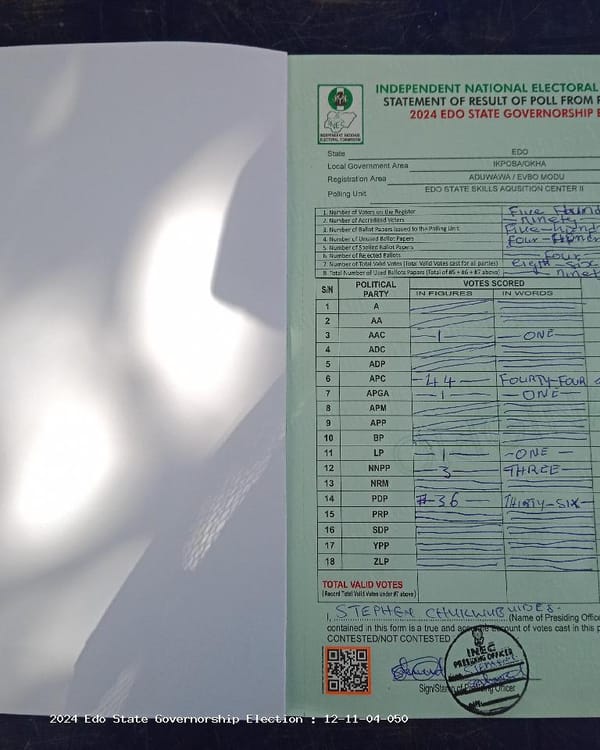 INDEPENDENT NATIONAL ELECTORAL
STATEMENT OF RESULT OF POLL FROM
2024 EDO STATE GOVERNORSHIP E
State EDO
Local Government Area IKPOBA/OKHA
Registration Area ADUWAWA / EVBO MODU
Polling Unit EDO STATE SKILLS AQUSITION CENTER II
1. Number of Voters on the Register Five
2. Number of Accredited Voters ninete
3. Number of Ballot Papers issued to the Polling Unit Five-hund
4. Number of Unused Ballot Papers Four-Hundr
5. Number of Spoiled Ballot Papers
6. Number of Rejected Ballots Four
7. Number of Total Valid Votes (Total Valid Votes cast for all parties) eight six
8. Total Number of Used Ballots Papers (Total of #5 + #6 + #7 above) ninet
S/N POLITICAL PARTY VOTES SCORED
IN FIGURES IN WORDS
1 A
2 AA
3 AAC -1- ONE
4 ADC
5 ADP
6 APC -44- FOURTY-FOUR
7 APGA -1- ONE
8 APM
9 APP
10 BP
11 LP -1- -ONE-
12 NNPP -3- THREE
13 NRM
14 PDP -36- THIRTY-SIX
15 PRP
16 SDP
17 YPP
18 ZLP
TOTAL VALID VOTES
(Record Total Valid Votes under #7 above)
I, STEPHEN (Name of Presiding Office
contained in this form is a true and accurate account of votes cast in this p
CONTESTED/NOT CONTESTED
INEC
PRESIDING OFFICER
Sign/Stamp of Presiding Officer
2024 Edo State Governorship Election : 12-11-04-050